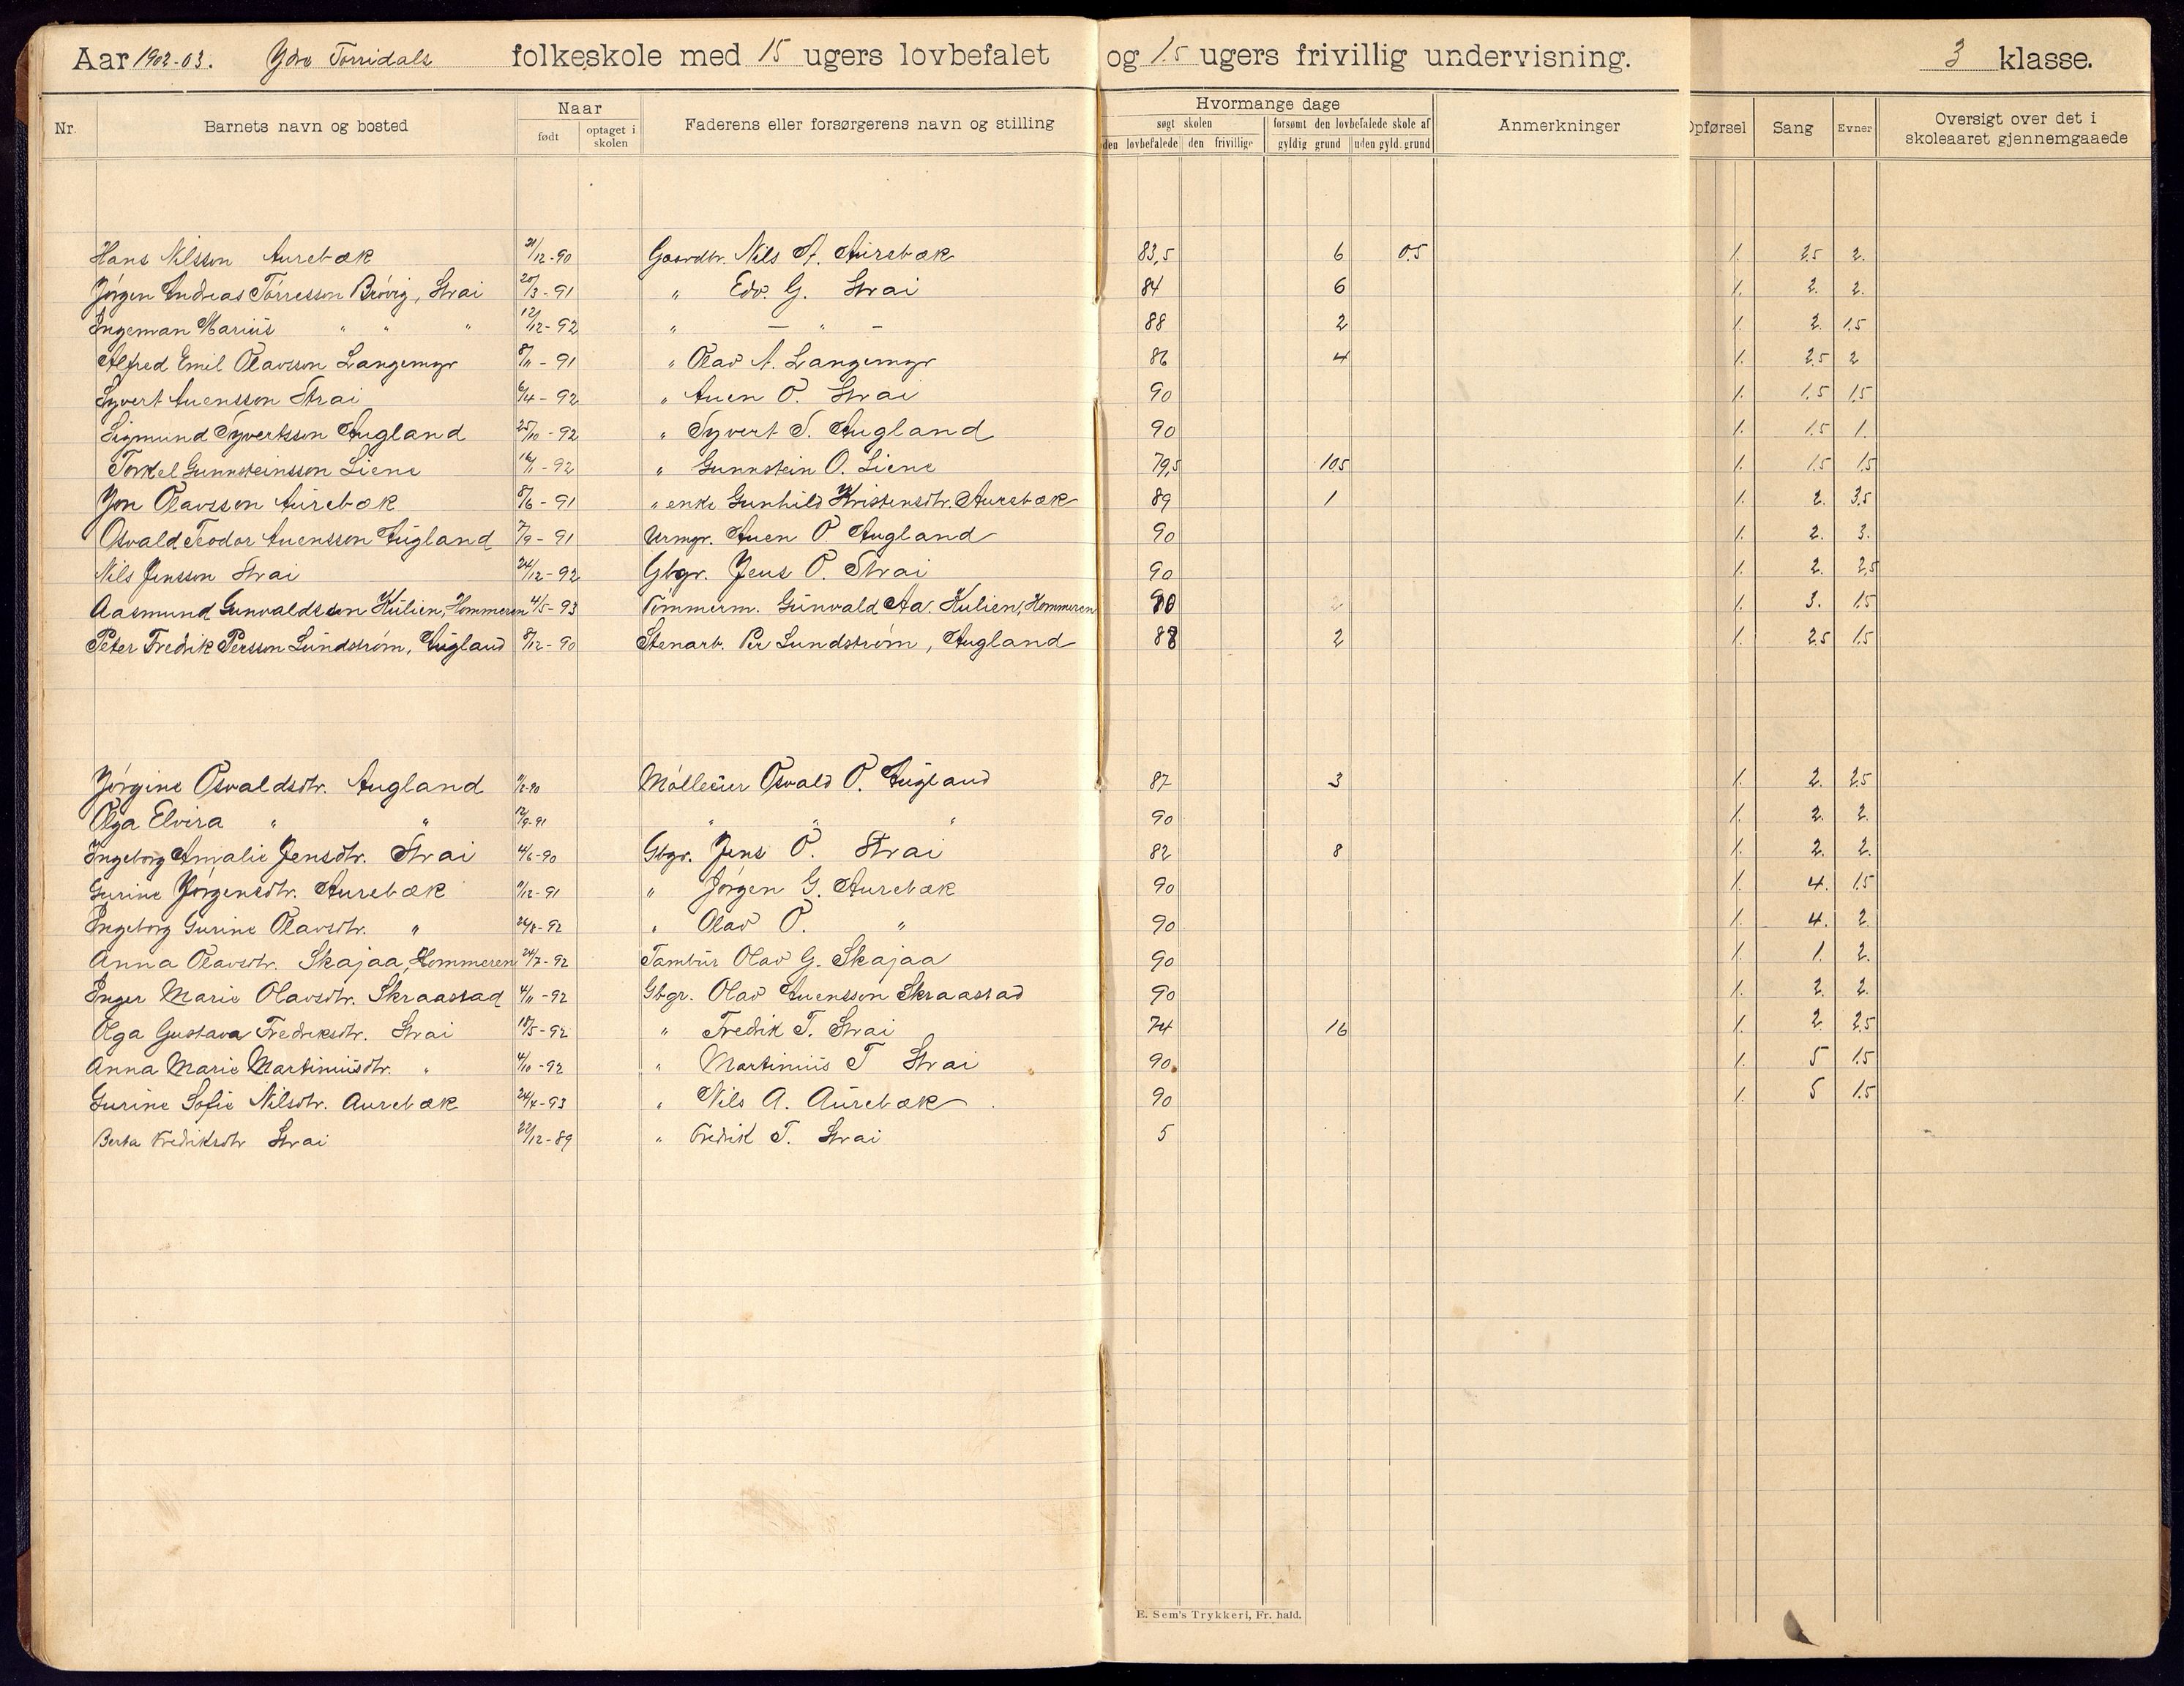 Aar 1902-03. Ydre Torridals folkeskole med 15 ugers lovbefalet og 15 ugers frivillig undervisning. 3 klasse.
Nr. Barnets navn og bosted Naar født optaget i skolen Faderens eller forsørgerens navn og stilling Hvormange dage søgt skolen den lovbefalede den frivillige forsømt den lovbefalede skole af gyldig grund uden gyld. grund Anmerkninger Opførsel Sang Evner Oversigt over det i skoleaaret gjennemgaaede
Hans Nilsson Aurebæk 21/12-90 Gaardbr. Nils A. Aurebæk 83,5 6 0.5 1. 2.5 2.
Jørgen Andreas Tørresson Brøvig, Strai 20/3-91 " Edv. G. Strai 84 6 1. 2. 2.
Ingeman Marius " " " 12/12-92 " — " — 88 2 1. 2. 1.5
Alfred Emil Olavsson Langemyr 8/11-91 " Olav A. Langemyr 86 4 1. 2.5 2
Syvert Auensson Strai 6/4-92 " Auen O. Strai 90 1. 1.5 1.5
Sigmund Syvertsson Augland 25/10-92 " Syvert S. Augland 90 1. 1.5 1.
Torkel Gunnsteinsson Liene 16/1-92 " Gunnstein O. Liene 79,5 10.5 1. 1.5 1.5
Jon Olavsson Aurebæk 8/6-91 " enke Gunhild Kristensdtr. Aurebæk 89 1 1. 2. 3.5
Osvald Teodor Auensson Augland 7/9-91 Urmgr. Auen O. Augland 90 1. 2. 3.
Nils Jensson Strai 24/12-92 Gbgr. Jens O. Strai 90 1. 2. 2,5
Aasmund Gunvaldson Kulien, Hommeren 4/5-93 Tømmerm. Gunvald Aa. Kulien, Hommeren 90 2 1. 3. 1.5
Peter Fredrik Persson Lundstrøm, Augland 8/12-90 Stenarb. Per Lundstrøm, Augland 88 2 1. 2.5 1.5
Jørgine Osvaldsdtr. Augland Møller Osvald O. Augland 87 3 1. 2. 2.5
Olga Elvira " " 12/9-91 " " " 90 1. 2. 2.
Ingeborg Amalie Jensdtr. Strai 4/6-90 Gbgr. Jens O. Strai 82 8 1. 2. 2.
Gurine Jørgensdtr. Aurebæk 9/12-91 " Jørgen G. Aurebæk 90 1. 4. 1.5
Ingeborg Gurine Olavsdtr. " 26/8-92 " Olav O. " 90 1. 4. 2.
Anna Olavsdtr. Skajaa, Hommeren 24/7-92 Tambur Olav G. Skajaa 90 1. 1. 2.
Inger Marie Olavsdtr. Skraastad 4/11-92 Gbgr. Olav Auensson Skraastad 90 1. 2. 2.
Olga Gustava Fredriksdtr. Strai 18/5-92 " Fredrik T. Strai 74 16 1. 2. 2.5
Anna Marie Martiniusdtr. " 4/10-92 " Martinius T Strai 90 1. 5 1.5
Gurine Sofie Nilsdtr. Aurebæk 24/4-93 " Nils A. Aurebæk 90 1. 5 1.5
Berta Fredriksdtr Strai 22/12-89 " Fredrik T. Strai 5
E. Sem's Trykkeri, Fr. hald.